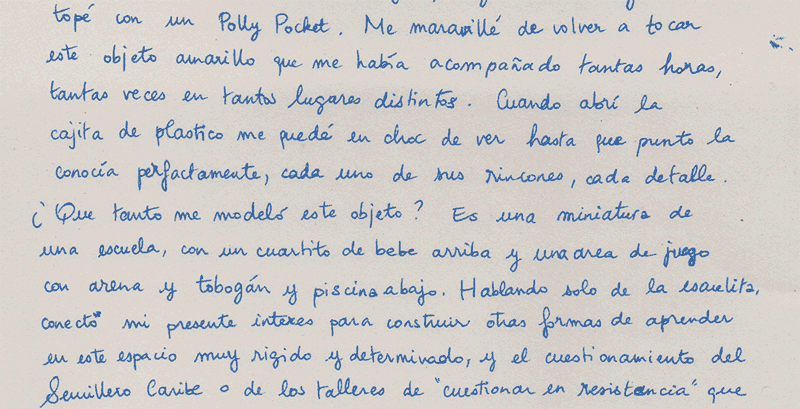 topé con un Polly Pocket. Me maravillé de volver a tocar
este objeto amarillo que me había acompañado tantas horas,
tantas veces en tantos lugares distintos. Cuando abrí la
cajita de plastico me quedé en choc de ver hasta que punto la
conocía perfactamente, cada uno de sus rincones, cada detalle.
¿Que tanto me modeló este objeto? Es una miniatura de
una escuela, con un cuartito de bebe arriba y una area de juego
con arena y tobogán y piscina abajo. Hablando solo de la escuelita,
conecto* mi presente interes para construir otras formas de aprender
en este espacio muy rigido y determinado, y el cuestionamiento del
Semillero Caribe o de los talleres de "cuestionar en resistencia" que